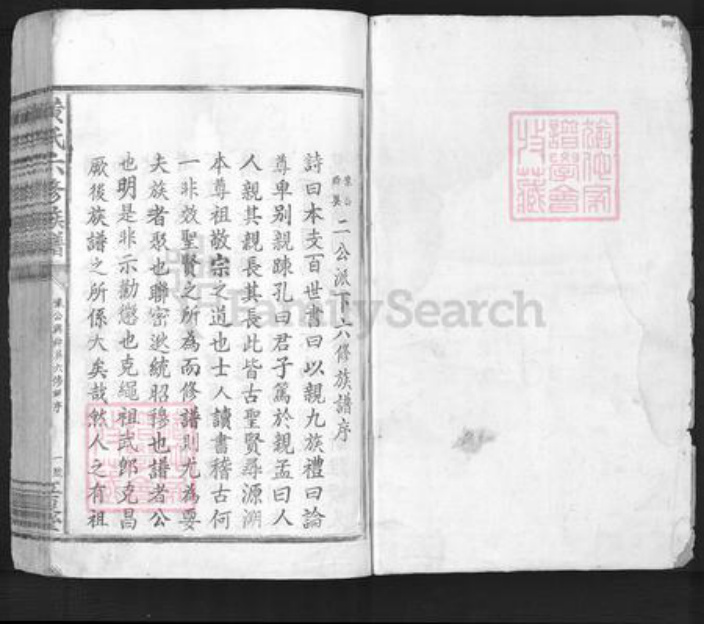 二公派下六修族譜序
詩曰本支百世書曰以親九族禮曰論
尊卑别親踈孔曰君子篤於親孟曰人
人親其親長其長此皆古聖賢尋源溯
本尊祖敬宗之道也士人讀書稽古何
一非效聖賢之所為而修譜則尤為要
夫族者聚也聯密逖統昭穆也譜者公
也明是非示勸懲也克繩祖武郎克昌
厥後族譜之所係大矣哉然人之有祖
黃氏六修族譜
FamilySearch